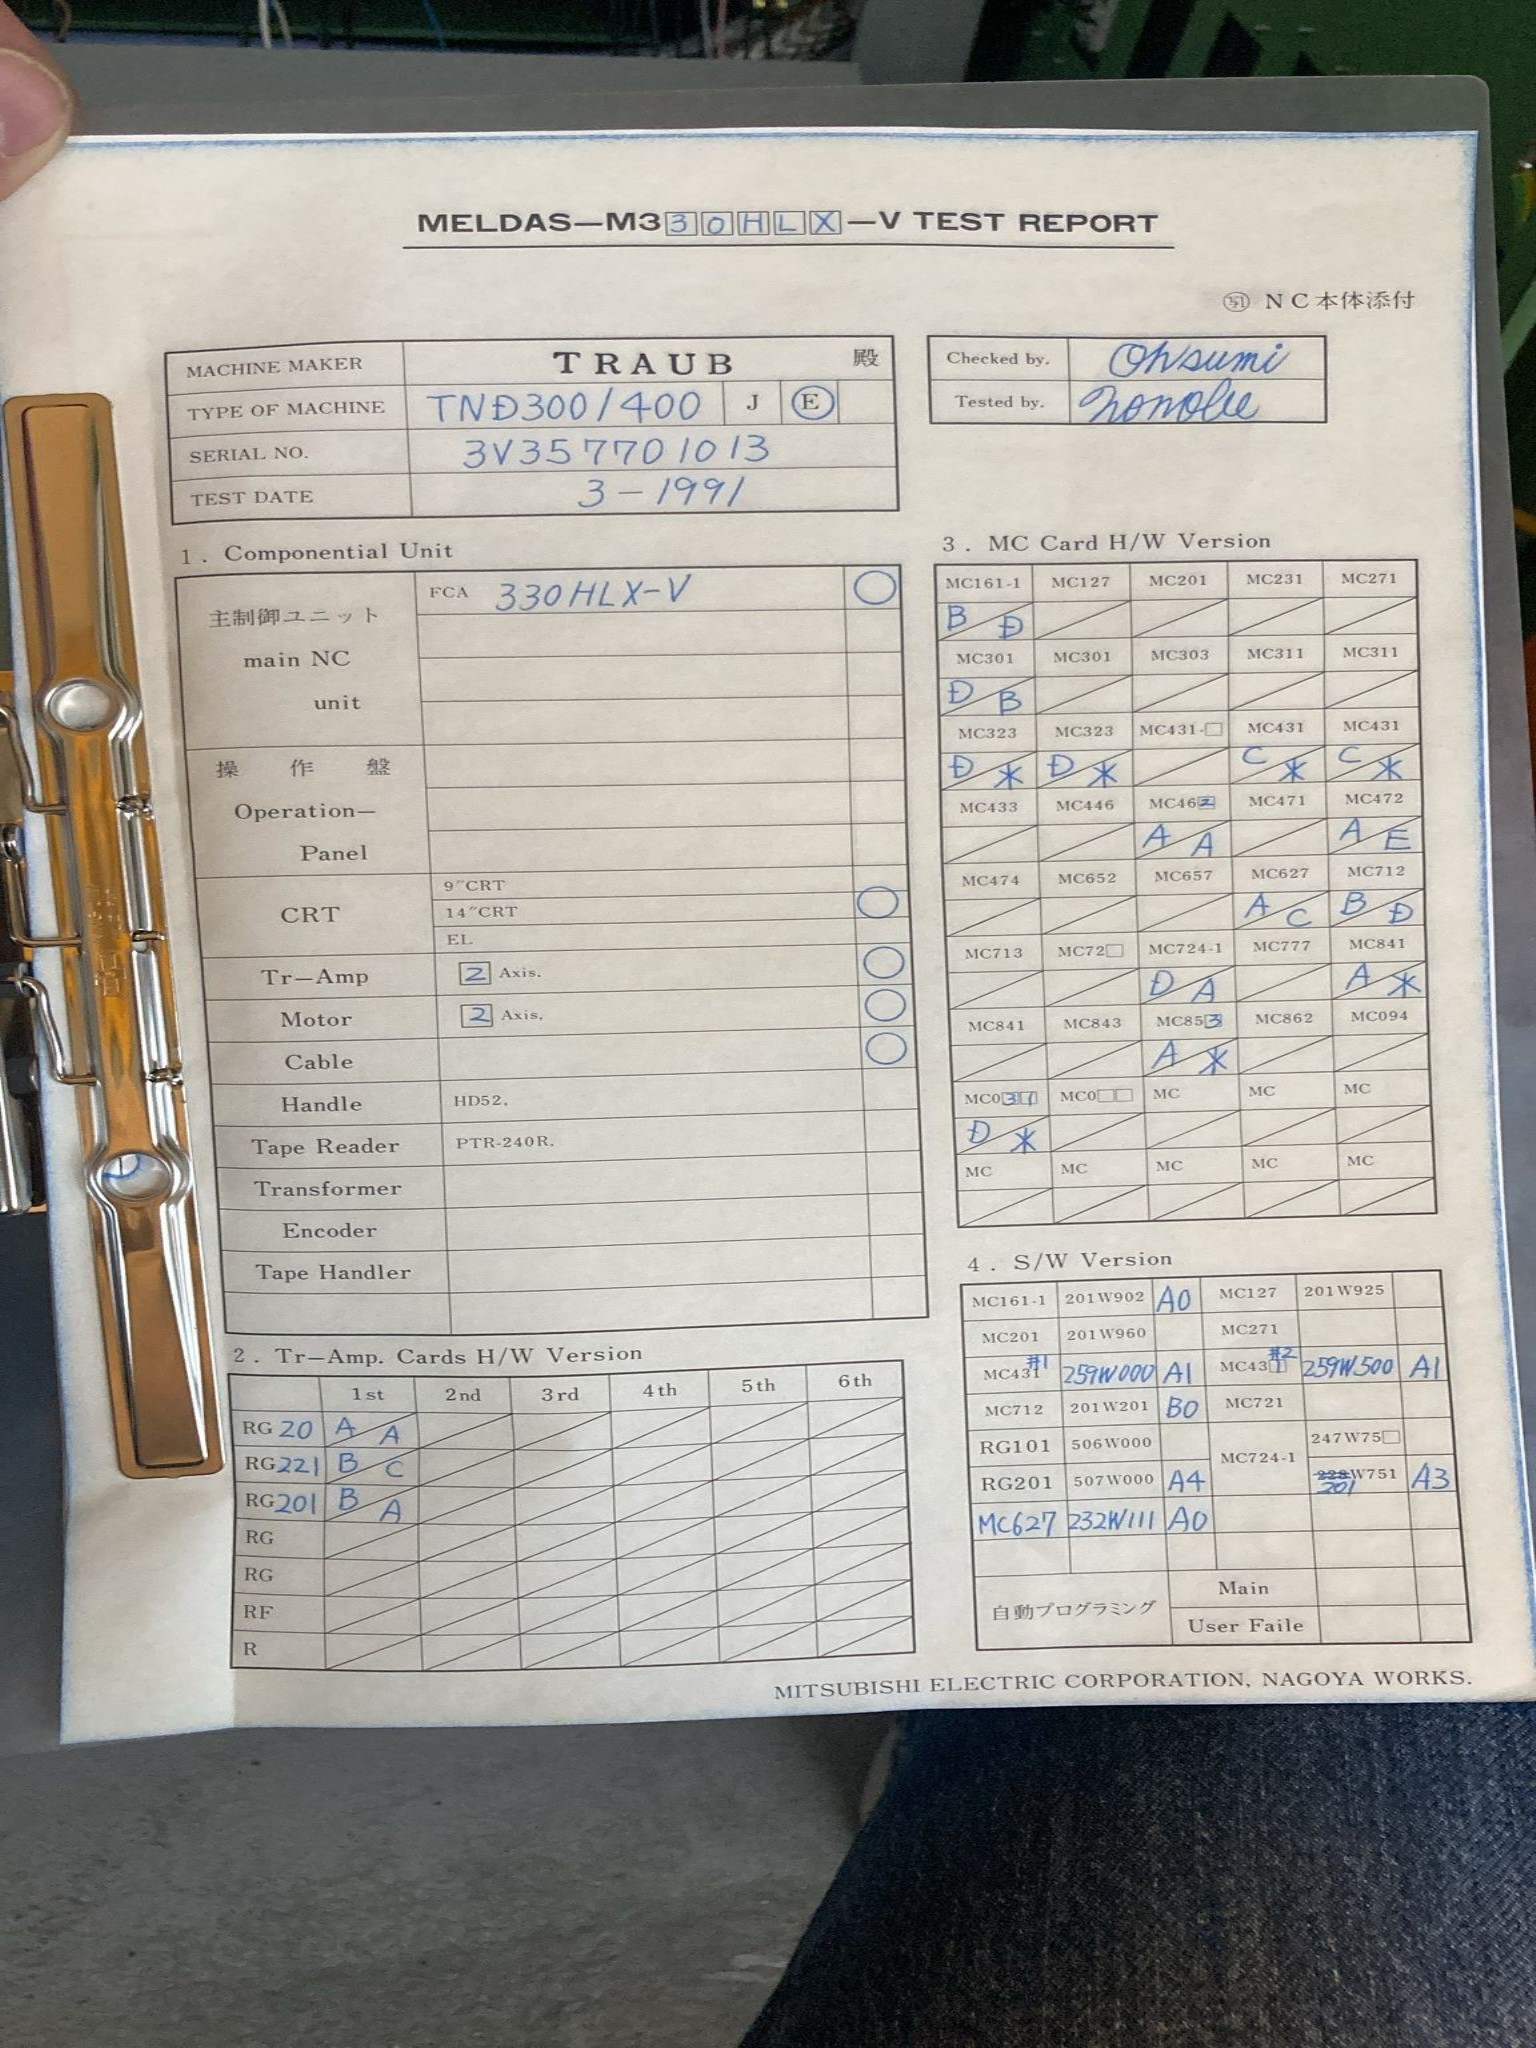 MELDAS—M3 3 0 H L X —V TEST REPORT
写 NC本体添付
MACHINE MAKER TRAUB 殿
TYPE OF MACHINE TND300/400 J E
SERIAL NO. 3V357701013
TEST DATE 3-1991
Checked by. Ohsumi
Tested by.
1. Componential Unit
主制御ユニット FCA 330HLX-V ○
main NC
unit
操作盤
Operation—
Panel
9″CRT
CRT 14″CRT ○
EL
Tr—Amp 2 Axis. ○
Motor 2 Axis. ○
Cable ○
Handle HD52.
Tape Reader PTR-240R.
Transformer
Encoder
Tape Handler
2. Tr—Amp. Cards H/W Version
1st 2nd 3rd 4th 5th 6th
RG 20 A/A
RG 221 B/C
RG 201 B/A
RG
RG
RF
R
3. MC Card H/W Version
MC161-1 MC127 MC201 MC231 MC271
B/D
MC301 MC301 MC303 MC311 MC311
D/B
MC323 MC323 MC431-□ MC431 MC431
D/* D/* C/* C/*
MC433 MC446 MC462 MC471 MC472
A/A A/E
MC474 MC652 MC657 MC627 MC712
A/C B/D
MC713 MC72□ MC724-1 MC777 MC841
D/A A/*
MC841 MC843 MC853 MC862 MC094
A/*
MC031 MC0□□ MC MC MC
D/*
MC MC MC MC MC
4. S/W Version
MC161-1 201W902 A0 MC127 201W925
MC201 201W960 MC271
MC431 #1 259W000 A1 MC431 #2 259W500 A1
MC712 201W201 B0 MC721
RG101 506W000 MC724-1 247W75□
RG201 507W000 A4 228W751 201 A3
MC627 232W111 A0
自動プログラミング Main
User Faile
MITSUBISHI ELECTRIC CORPORATION, NAGOYA WORKS.